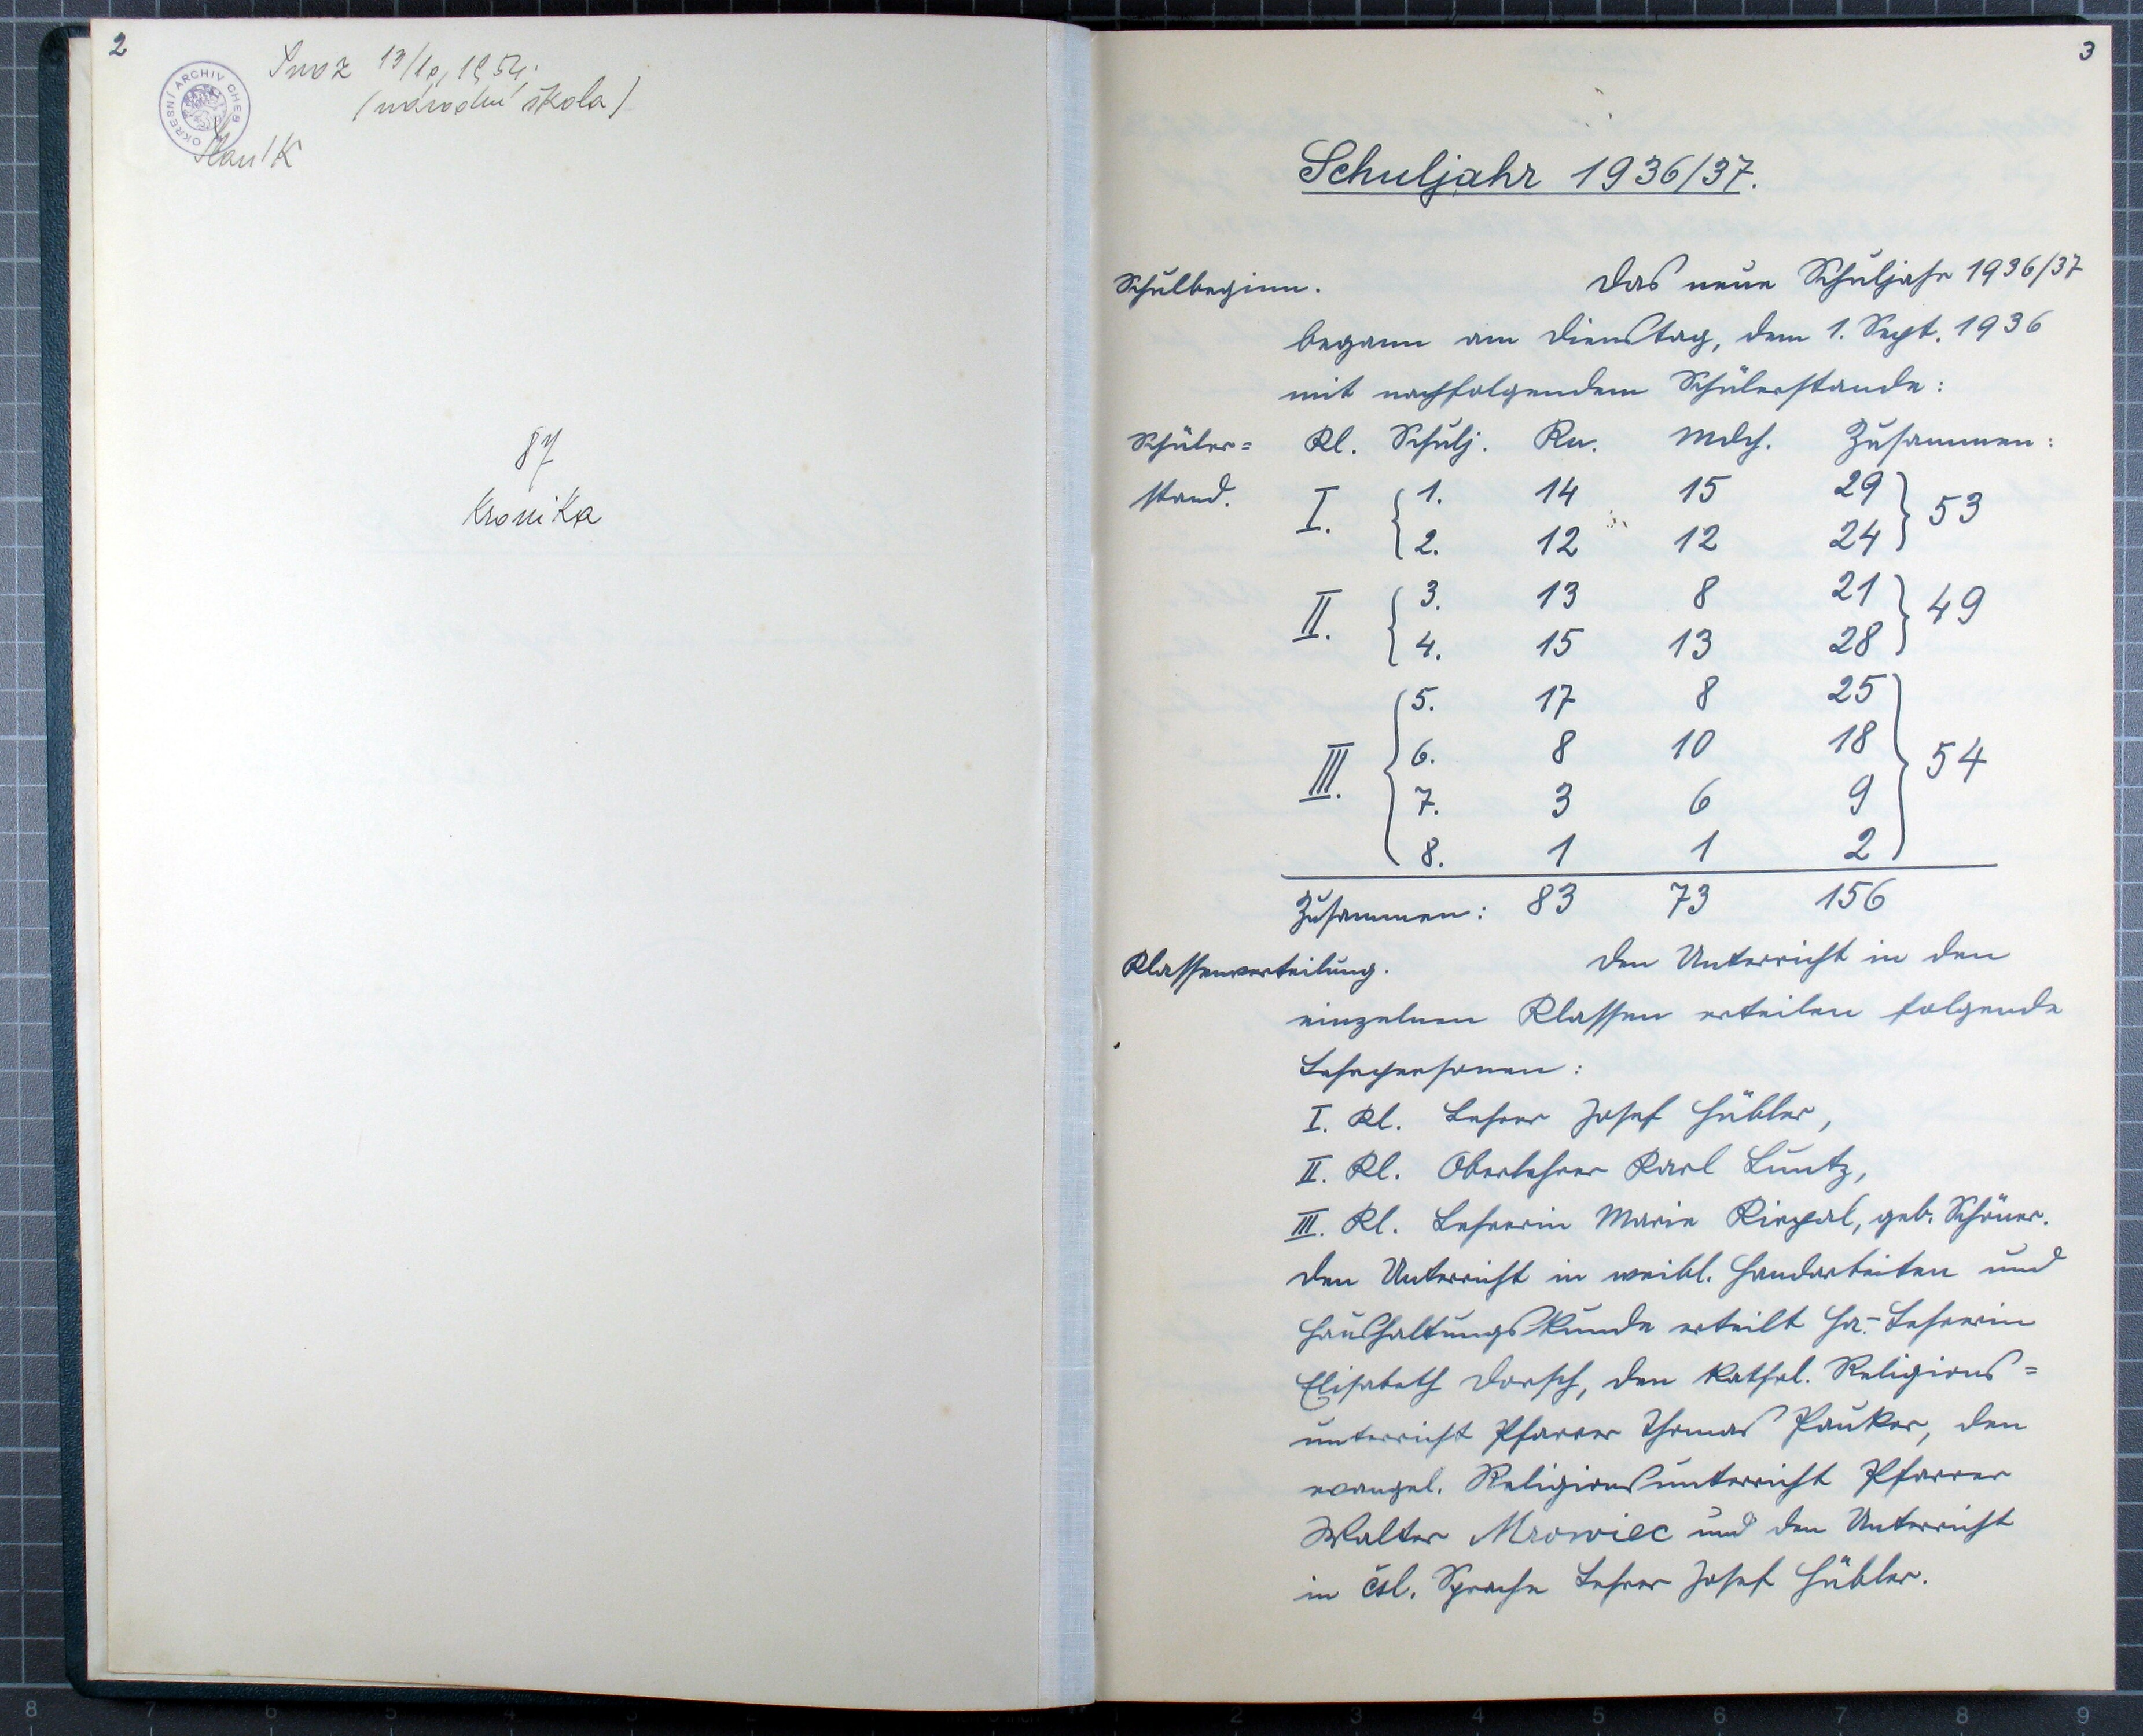 2
Svoz 13/10, 1954.
(národní škola)
OKRESNÍ ARCHIV CHEB
87
Kronika
3
Schuljahr 1936/37.
Schulbeginn. Das neue Schuljahr 1936/37
begann am Dienstag, dem 1. Sept. 1936
mit nachfolgendem Schülerstande:
Schüler= Kl. Schulj. Kn. Mdch. Zusammen:
stand. I. 1. 14 15 29 53
2. 12 12 24
II. 3. 13 8 21 49
4. 15 13 28
5. 17 8 25
III. 6. 8 10 18 54
7. 3 6 9
8. 1 1 2
Zusammen: 83 73 156
Klassenverteilung. Den Unterricht in den
einzelnen Klassen erteilen folgende
Lehrpersonen:
I. Kl. Lehrer Josef Hübler,
II. Kl. Oberlehrer Karl Luntz,
III. Kl. Lehrerin Marie Riepal, geb. Schöner.
Den Unterricht in weibl. Handarbeiten und
Haushaltungskunde erteilt Ha.-Lehrerin
Elisabeth Dorsch, den kathol. Religions=
unterricht Pfarrer Thomas Pauker, den
evangel. Religionsunterricht Pfarrer
Walter Mrowiec und den Unterricht
in čsl. Sprache Lehrer Josef Hübler.